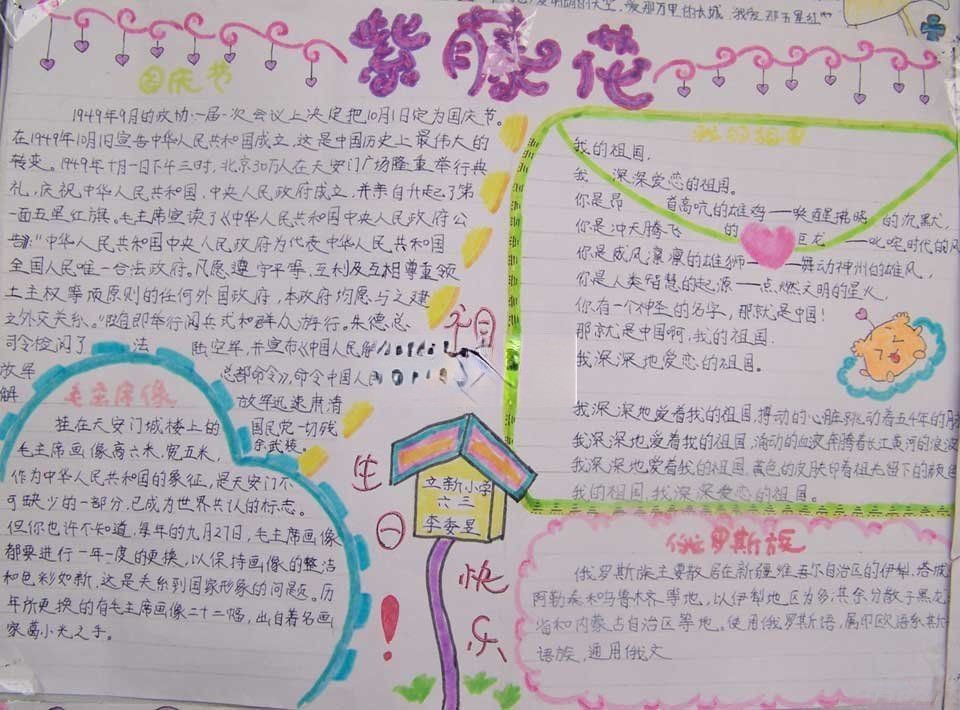 紫藤花
国庆节
1949年9月的政协一届一次会议上决定把10月1日定为国庆节。
在1949年10月1日宣告中华人民共和国成立,这是中国历史上最伟大的
转变。1949年十月一日下午三时,北京30万人在天安门广场隆重举行典
礼,庆祝中华人民共和国,中央人民政府成立,并亲自升起了第
一面五星红旗。毛主席宣读了《中华人民共和国中央人民政府公
告》:“中华人民共和国中央人民政府为代表中华人民共和国
全国人民唯一合法政府。凡愿遵守平等、互利及互相尊重领
土主权等项原则的任何外国政府,本政府均愿与之建
之外交关系。”随即举行阅兵式和群众游行。朱德总
司令检阅了 法 陆空军,并宣布《中国人民解
放军 总部命令》,命令中国人民
解 放军迅速肃清
国民党一切残
余武装。
毛主席像
挂在天安门城楼上的
毛主席画像高六米,宽五米,
作为中华人民共和国的象征,是天安门不
可缺少的一部分,已成为世界共认的标志。
但你也许不知道,每年的九月27日,毛主席画像
都要进行一年一度的更换,以保持画像的整洁
和色彩如新,这是关系到国家形象的问题。历
年所更换的有毛主席画像二十二幅,出自着名画
家葛小光之手。
祖
生
日
快
乐
!
立新小学
六三
我的祖国
我的祖国,
我 深深爱恋的祖国。
你是昂 首高吭的雄鸡——唤醒拂晓 的沉默,
你是冲天腾飞 的 巨龙——叱咤时代的风
你是威风凛凛的雄狮——舞动神州的雄风,
你是人类智慧的起源——点燃文明的星火,
你有一个神圣的名字,那就是中国!
那就是中国啊,我的祖国.
我深深地爱恋的祖国。
我深深地爱着我的祖国,搏动的心脏跳动着五千年的
我深深地爱着我的祖国,涌动的血液奔腾着长江黄河的
我深深地爱着我的祖国,黄色的皮肤印着祖先留下的
我的祖国,我深深爱恋的祖国。
俄罗斯族
俄罗斯族主要散居在新疆维吾尔自治区的伊犁、塔城
阿勒泰和乌鲁木齐等地,以伊犁地区为多,其余分散于黑龙
省和内蒙古自治区等地。使用俄罗斯语,属印欧语系斯
语族,通用俄文